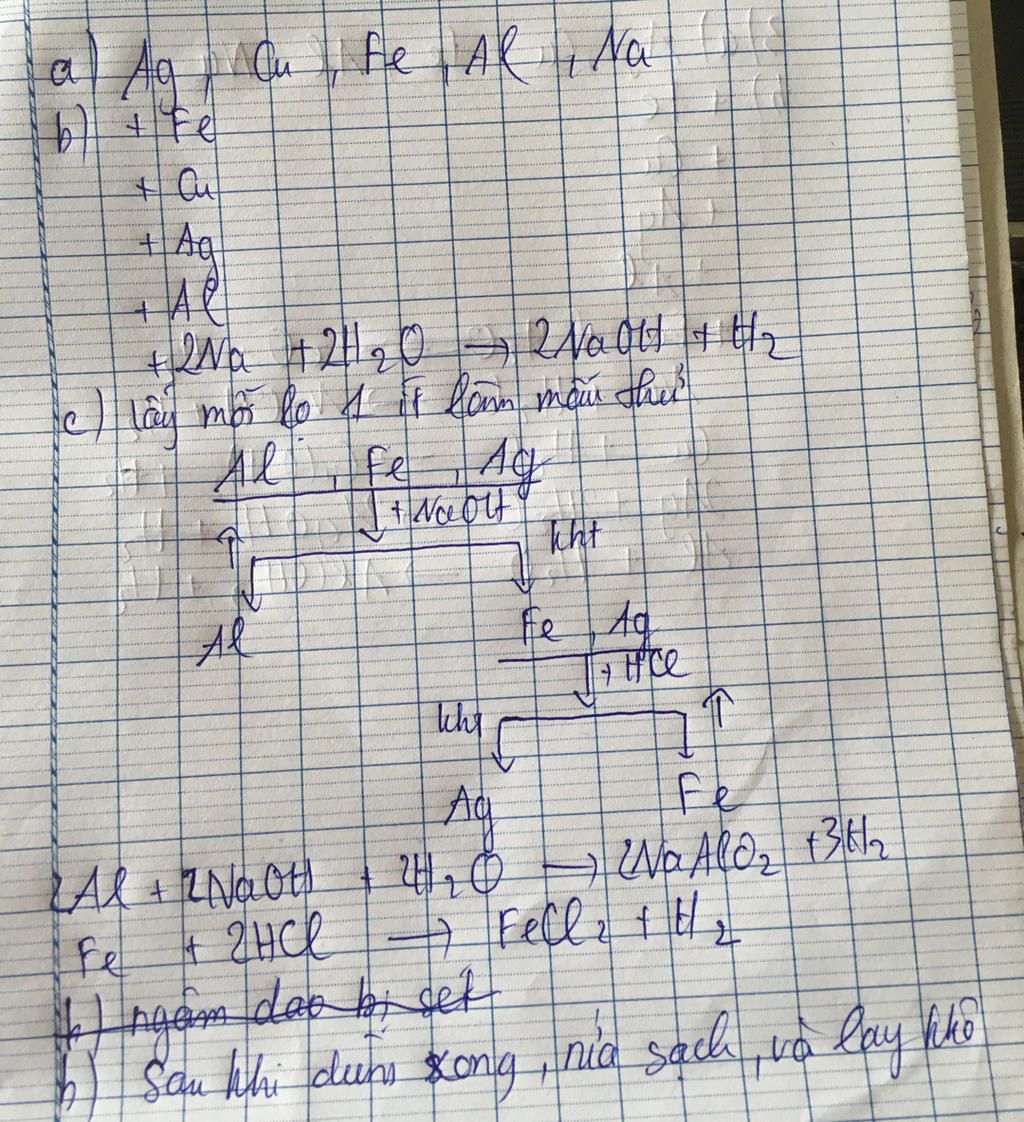 a) Ag, Cu, Fe, Al, Na
b) + Fe
+ Cu
+ Ag
+ Al
+ 2Na + 2H₂O → 2NaOH + H₂
c) lấy mỗi lọ 1 ít làm mẫu thử
Al, Fe, Ag
↓ + NaOH
↑ kht
Al Fe, Ag
↓ + HCl
kht ↑
Ag Fe
2Al + 2NaOH + 2H₂O → 2NaAlO₂ + 3H₂
Fe + 2HCl → FeCl₂ + H₂
h) ngâm dao bị sét
h) Sau khi dùng xong, rửa sạch, và lau khô